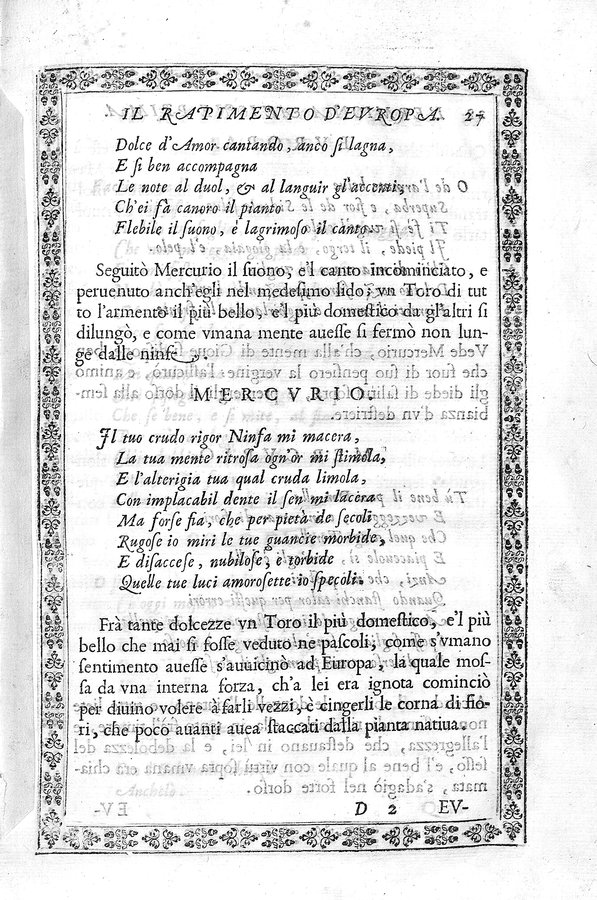 IL RAPIMENTO D'EVROPA. 27
Dolce d'Amor cantando, anco si lagna,
E si ben accompagna
Le note al duol, & al languir gl'accenti,
Ch'ei fà canoro il pianto
Flebile il suono, e lagrimoso il canto.
Seguitò Mercurio il suono, e'l canto incominciato, e
peruenuto anch'egli nel medesimo lido, vn Toro di tut
to l'armento il più bello, e'l più domestico da gl'altri si
dilungò, e come vmana mente auesse si fermò non lun-
ge dalle ninfe
MERCVRIO.
Il tuo crudo rigor Ninfa mi macera,
La tua mente ritrosa ogn'or mi stimola,
E l'alterigia tua qual cruda limola,
Con implacabil dente il sen mi lacera
Ma forse fia, che per pietà de secoli
Rugose io miri le tue guancie morbide,
E disaccese, nubilose, e torbide
Quelle tue luci amorosette io specoli.
Frà tante dolcezze vn Toro il più domestico, e'l più
bello che mai si fosse veduto ne pascoli, come s'vmano
sentimento auesse s'auuicinò ad Europa, la quale mos-
sa da vna interna forza, ch'a lei era ignota cominciò
per diuino volere à farli vezzi, e cingerli le corna di fio-
ri, che poco auanti auea staccati dalla pianta natiua.
D 2 EV-